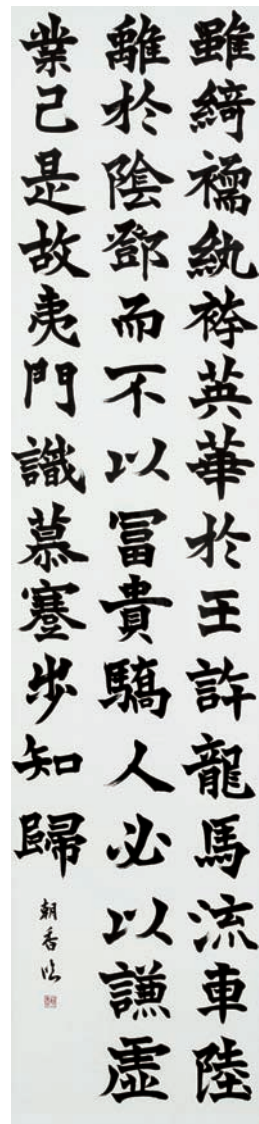 雖綺襦紈袴英華於王許龍馬流車陸
離於陰鄧而不以冨貴驕人必以謙虛
業己是故夷門識慕蹇步知歸
朝香臨